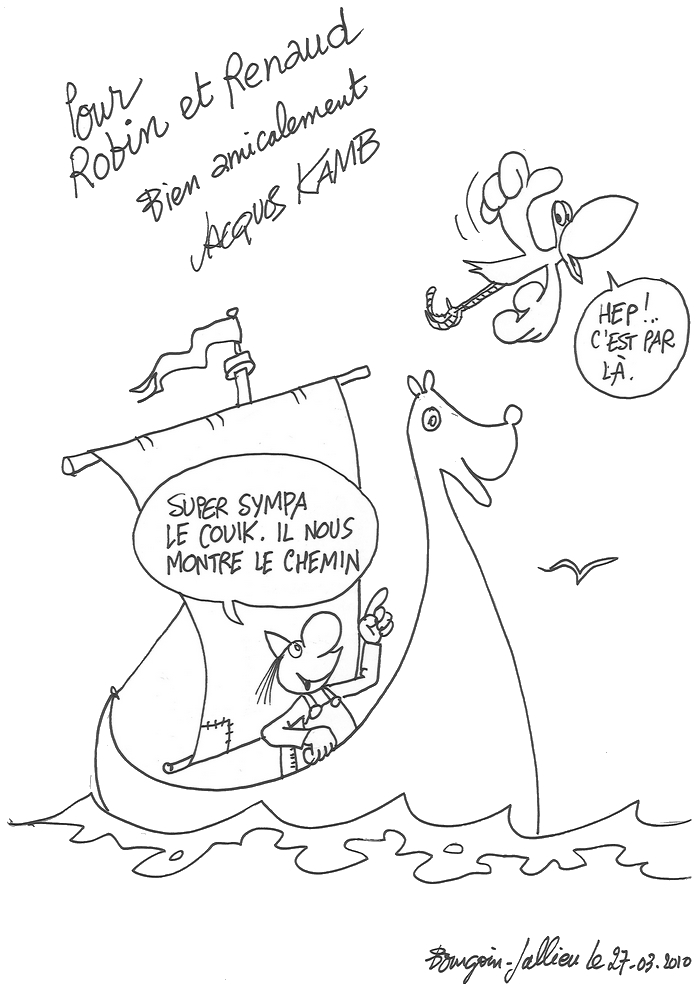 Pour
Robin et Renaud
Bien amicalement
JACQUES KAMB
HEP!..
C'EST PAR
LÀ.
SUPER SYMPA
LE COUIK. IL NOUS
MONTRE LE CHEMIN
Bourgoin-Jallieu le 27-03.2010